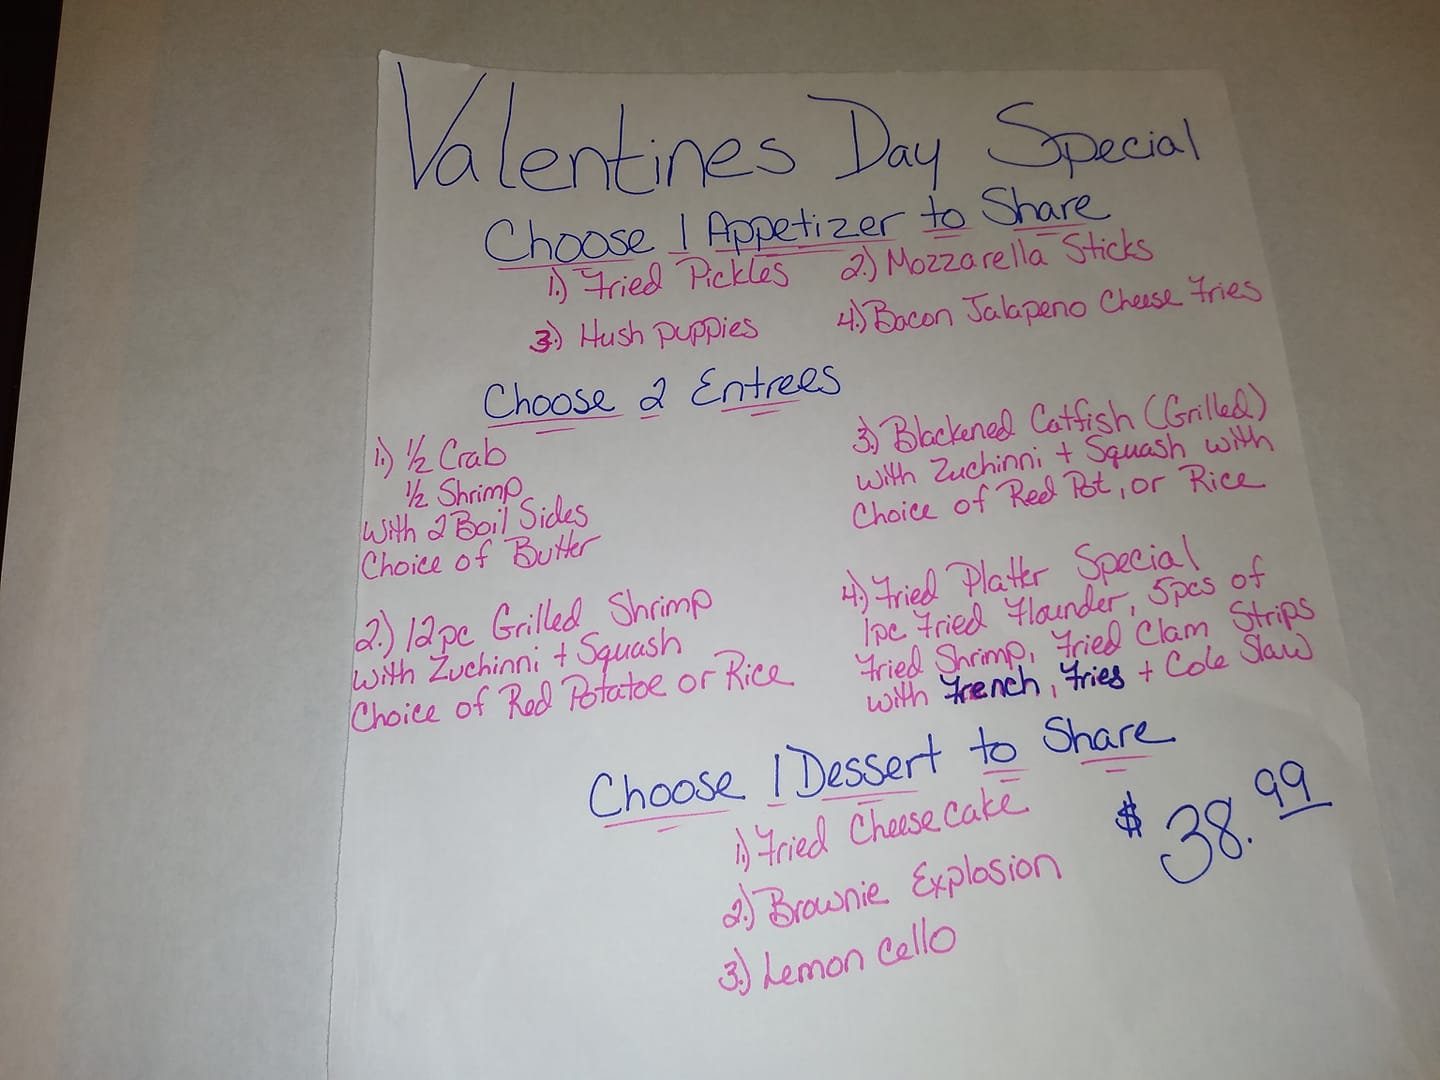 Valentines Day Special
Choose 1 Appetizer to Share
1.) Fried Pickles 2.) Mozzarella Sticks
3.) Hush puppies 4.) Bacon Jalapeno Cheese Fries
Choose 2 Entrees
1.) 1/2 Crab
1/2 Shrimp
with 2 Boil Sides
Choice of Butter
2.) 12pc Grilled Shrimp
with Zuchinni + Squash
Choice of Red Potatoe or Rice
3.) Blackened Catfish (Grilled)
with Zuchinni + Squash with
Choice of Red Pot, or Rice
4.) Fried Platter Special
1pc Fried Flounder, 5pcs of
Fried Shrimp, Fried Clam Strips
with French, Fries + Cole Slaw
Choose 1 Dessert to Share
1.) Fried Cheesecake
2.) Brownie Explosion
3.) Lemon Cello
$38.99